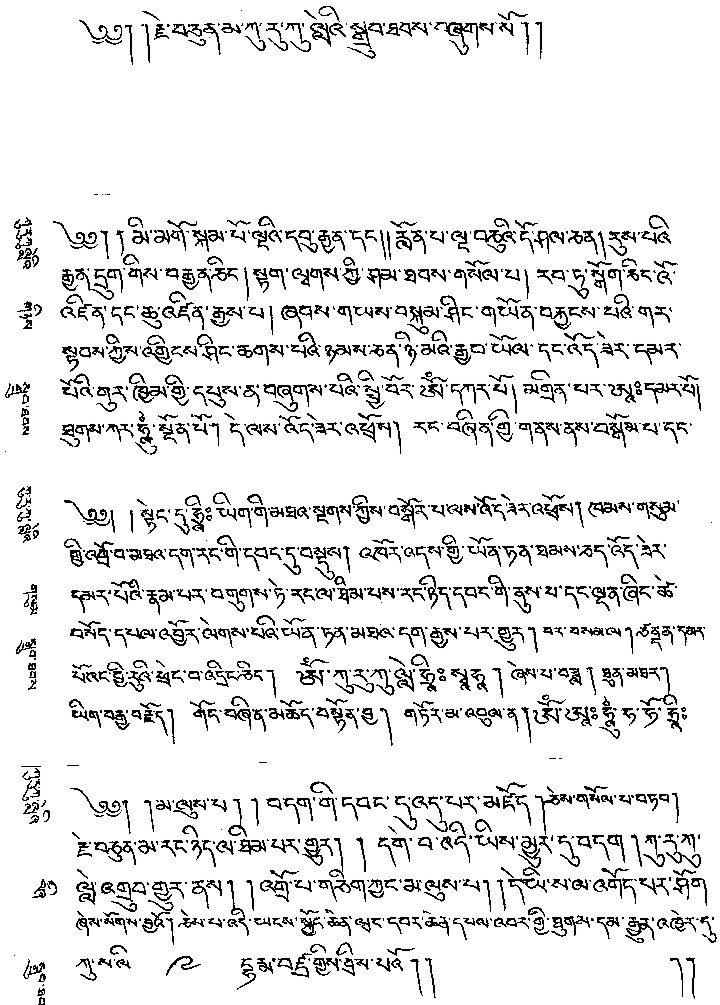 ༄༅། །རྗེ་བཙུན་མ་ཀུ་རུ་ཀུ་ལླེའི་སྒྲུབ་ཐབས་བཞུགས་སོ། །
༄༅། །མི་མགོ་སྐམ་པོ་ལྔའི་དབུ་རྒྱན་དང༌།། རློན་པ་ལྔ་བཅུའི་དོ་ཤལ་ཅན། རུས་པའི་
རྒྱན་དྲུག་གིས་བརྒྱན་ཅིང་། སྟག་ལྤགས་ཀྱི་ཤམ་ཐབས་གསོལ་པ། རབ་ཏུ་སྒྲོག་ཅིང་འོ་
འཛིན་དང་ཆུ་འཛིན་རྒྱས་པ། ཞབས་གཡས་བསྐུམ་ཤིང་གཡོན་བརྐྱངས་པའི་གར་
སྟབས་ཀྱིས་འགྱིངས་ཤིང་ཆགས་པའི་ཉམས་ཅན་ཉི་མའི་རྒྱབ་ཡོལ་དང་འོད་ཟེར་དམར་
པོའི་གུར་ཁྱིམ་གྱི་དབུས་ན་བཞུགས་པའི་སྤྱི་བོར་ཨོཾ་དཀར་པོ། མགྲིན་པར་ཨཱཿདམར་པོ།
ཐུགས་ཀར་ཧཱུྃ་སྔོན་པོ། དེ་ལས་འོད་ཟེར་འཕྲོས། རང་བཞིན་གྱི་གནས་ནས་བསྒོམ་པ་དང་
༄༅། །སྟེང་དུ་ཧྲཱིཿཡིག་གི་མཐའ་སྔགས་ཀྱིས་བསྐོར་པ་ལས་འོད་ཟེར་འཕྲོས། ཁམས་གསུམ་
གྱི་འགྲོ་བ་མཐའ་དག་རང་གི་དབང་དུ་བསྡུས། འཁོར་འདས་ཀྱི་ཡོན་ཏན་ཐམས་ཅད་འོད་ཟེར་
དམར་པོའི་རྣམ་པར་བཀུག་སྟེ་རང་ལ་ཐིམ་པས་རང་ཉིད་དབང་གི་ནུས་པ་དང་ལྡན་ཞིང་ཚེ་
བསོད་དཔལ་འབྱོར་ལེགས་པའི་ཡོན་ཏན་མཐའ་དག་རྒྱས་པར་གྱུར། པར་བསམ་ལ། ཙནྡན་དམར་
པོའང་བྱི་རུའི་ཕྲེང་བ་འདྲིང་ཅིད། ཨོཾ་ཀུ་རུ་ཀུ་ལླེ་ཧྲཱིཿསྭཱཧཱ། ཞེས་པ་བཟླ། ཐུན་མཐར།
ཡིག་བརྒྱ་བརྗོད། གོང་བཞིན་མཆོད་བསྟོན་བྱ། གཏོར་མ་འབུལ་ན། ཨོཾ་ཨཱཿཧཱུྃ་ཧ་ཧོ་ཧྲཱིཿ
༄༅། །མ་ལུས་པ། །བདག་གི་དབང་དུ་འདུ་པར་མཛོད། ཅེས་གསོལ་བ་བཏབ།
རྗེ་བཙུན་མ་རང་ཉིད་ལ་ཐིམ་པར་གྱུར། །དགེ་བ་འདི་ཡིས་མྱུར་དུ་བདག །ཀུ་རུ་ཀུ་
ལླེ་འགྲུབ་གྱུར་ནས། །འགྲོ་བ་གཅིག་ཀྱང་མ་ལུས་པ། །དེ་ཡི་ས་ལ་འགོད་པར་ཤོག
ཞེས་སོགས་བྱའོ། ཅེས་པ་འདི་ཡང་
ཀུ་ས་ལི
བྲིས་པའོ།།